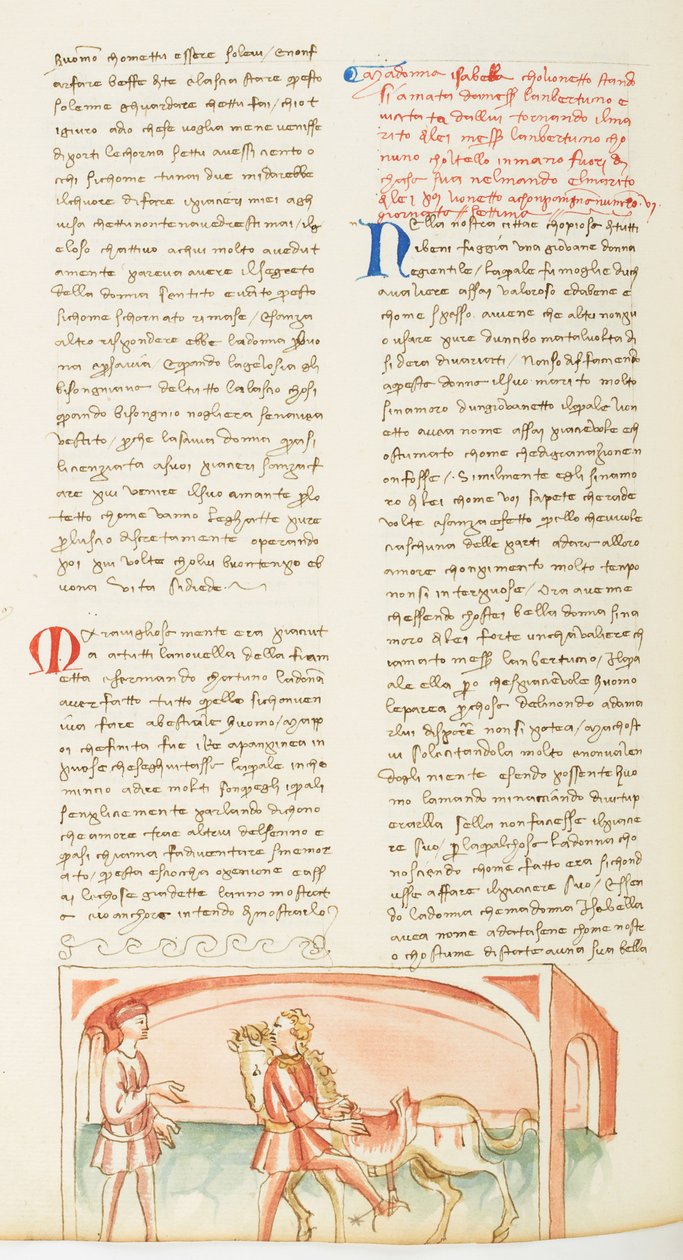 huomo chometti essere solevi / e non f
ar fare beffe di te e lascia stare questo
solenne ghuardare che tu fai / chio t
i giuro a dio che se voglia me ne venisse
di porti le chorna se tu avessi ciento o
cchi sichome tu nai due mi darebbe
il chuore di fare i piacieri miei a gh
uisa che tu non te navedresti mai / il g
eloso chattivo a chui molto avedut
amente pareva avere il segreto
della donna sentito e udito questo
sichome schornato rimase / e sanza
altro rispondere ebbe la donna p buo
na e p savia / e quando la gelosia gli
bisongniava del tutto la lascio chosi
quando bisongnio no gliera se naveva
vestito / p che la savia donna quasi
licenziata a suoi piacieri sanza f
are piu venire il suo amante p lo
tetto chome vanno le ghatte pure
p luscio discretamente operando
poi piu volte cholui buon tenpo e b
uona vita si diede
Maravigliosamente era piaciut
a a tutti la novella della fiam
etta afermando chatuno la donna
aver fatto tutto quello si chonven
iva fare a bestiale huomo / ma pp
oi che finita fue il re a panpinea in
puose che seghuitasse la quale in cho
mincio a dire molti son quegli i quali
senplicemente parlando dichono
che amore trae altrui del senno e
quasi chi ama fa diventare smemor
ato / questa e sciocha openione e ass
ai le chose gia dette lanno mostrat
o e io anchora intendo di mostrarlo
Madonna isabella cho lionetto stand
si amata da mess lanbertuccio e
vicita ta da llui tornando il ma
rito di lei mess lanbertuccio cho
nuno choltello in mano fuori di
chasa sua ne lmando el marito
di lei poi lionetto achonpangna numero . vi .
giornata settima
Nella nostra citta chopiosa di tutti
i beni fu gia una giovane donna
e gientile / la quale fu moglie du ch
avaliere assai valoroso e da bene e
chome spesso aviene che altri non pu
o usare pure dun cibo ma talvolta di
sidera di variarli / non sodisfaciendo
a questa donna il suo marito molto
sinamoro dun giovanetto il quale lion
etto avea nome assai piacevole e ch
ostumato chome che di gran nazione n
on fosse / similmente egli sinamo
ro di lei chome voi sapete che rade
volte e sanza efetto quello che vuole
ciaschuna delle parti a dare al loro
amore chonpimento molto tenpo
non si interpuose / Ora avenne
che essendo chostei bella donna sina
moro di lei forte un chavaliere ch
iamato mess lanbertuccio / il qu
ale ella p cio che spiacevole huomo
le parea p chosa del mondo ad ama
rlui disporre non si potea / ma chost
ui solecitandola molto e non valen
dogli niente esendo possente huo
mo la mando minacciando di vitup
erarlla sella non facesse il piacie
re suo / p la qual chosa la donna cho
nosciendo chome fatto era si chond
usse a ffare il piaciere suo / essen
do la donna che madonna isabella
avea nome andatasene chome nostr
o chostume di state a una sua bella